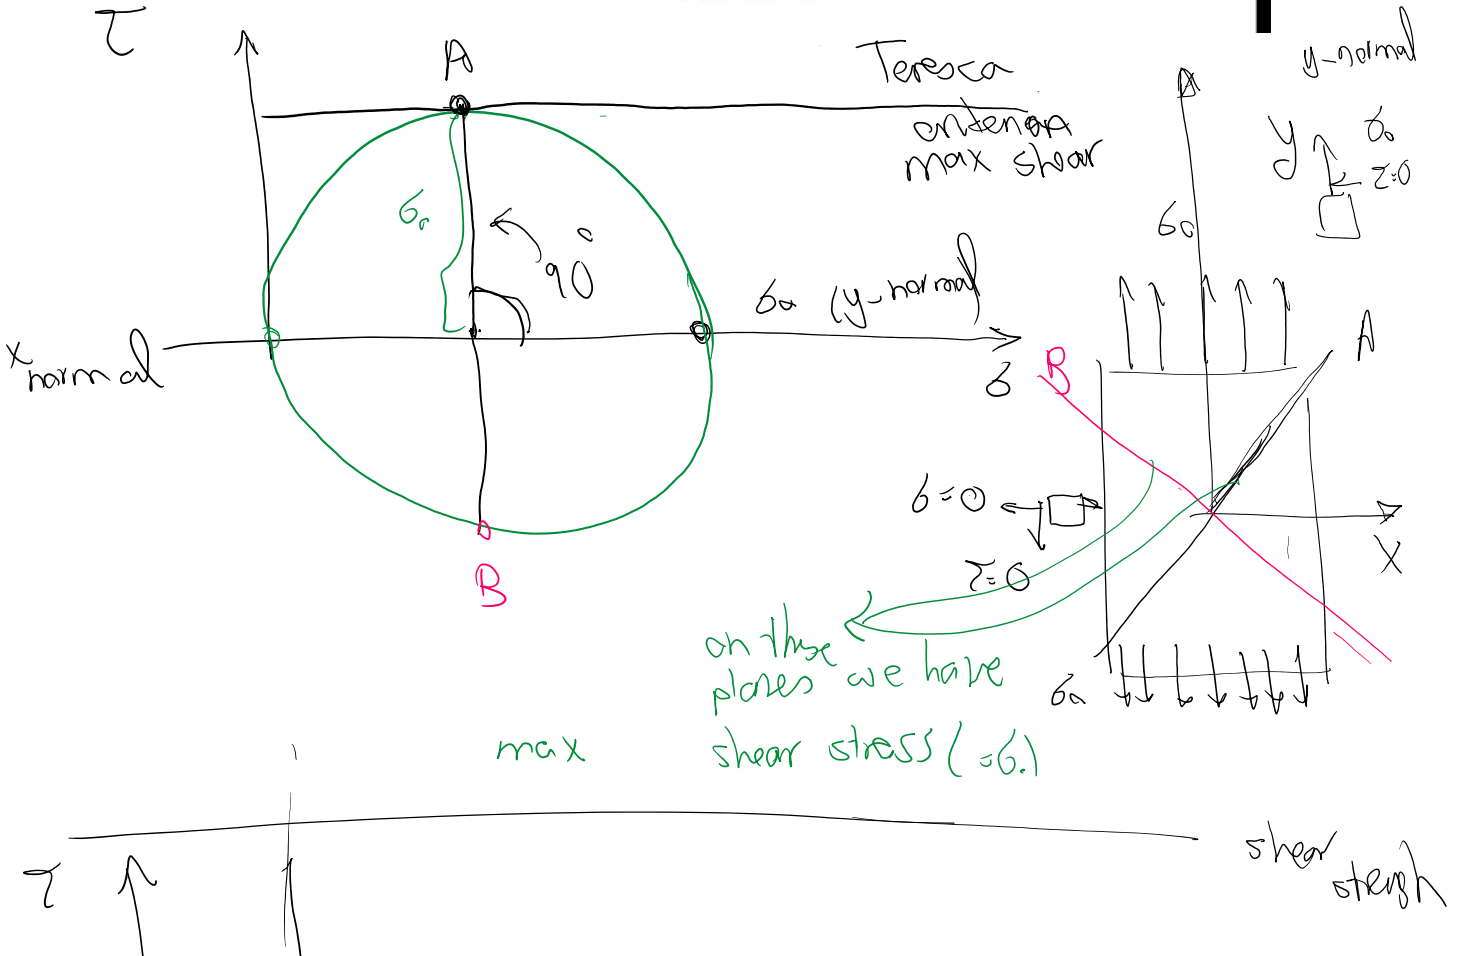 τ
A
Teresca
criterion
max shear
y-normal
y
σ₀
τ=0
σ₀
σ₀
90°
σ₀ (y-normal)
x
normal
σ
B
A
σ=0
τ=0
X
B
on these
planes we have
max shear stress (=σ₀)
σ₀
τ
shear
stengh